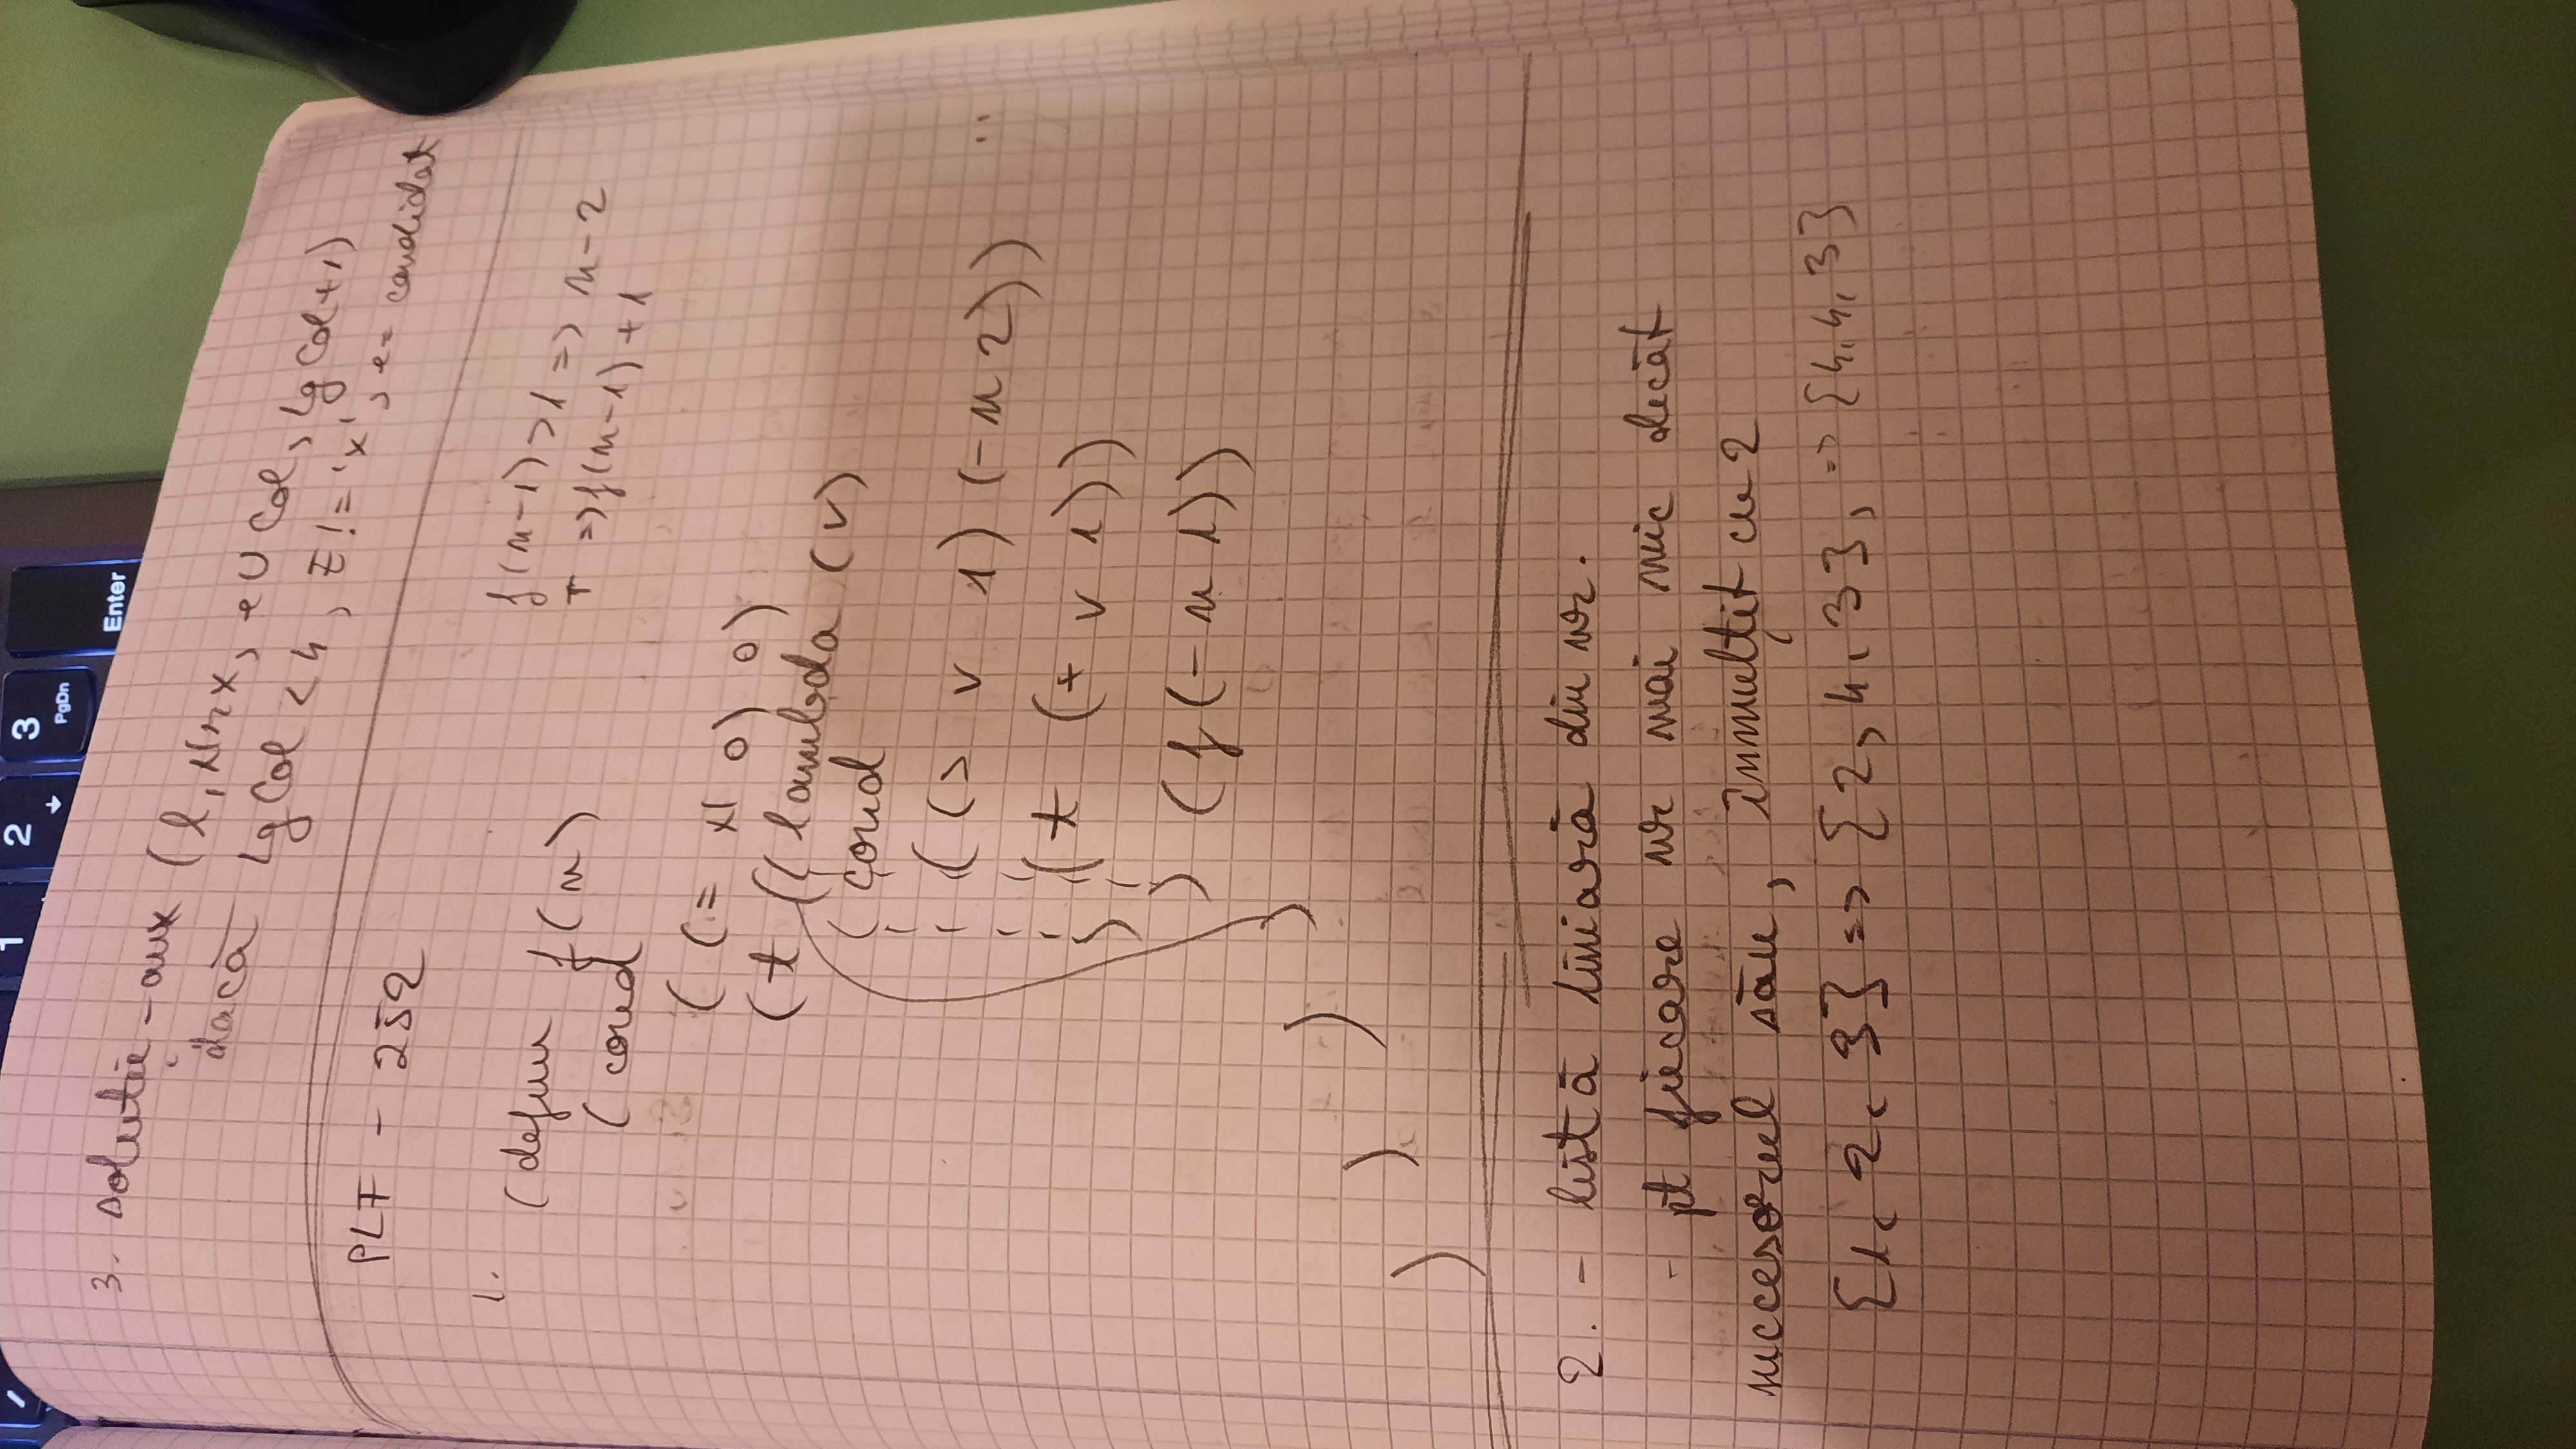 1
2
↓
3
PgDn
Enter
3. soluție-aux (l, Nrx, e U Col, LgCol+1)
dacă LgCol < 4, E != 'x', e = candidat
PLF - 252
1.
(defun f(n)
(cond
((= N 0) 0)
(t ((lambda (v)
(cond
((> v 1) (- n 2))
(t (+ v 1))
)
) (f (- n 1))
)
)
)
)
f(n-1) > 1 => n-2
T => f(n-1) + 1
2. - listă liniară din nr.
- pt fiecare nr mai mic decât
succesorul său, înmulțit cu 2
{1, 2, 3} => {2, 4, 3}, => {4, 4, 3}